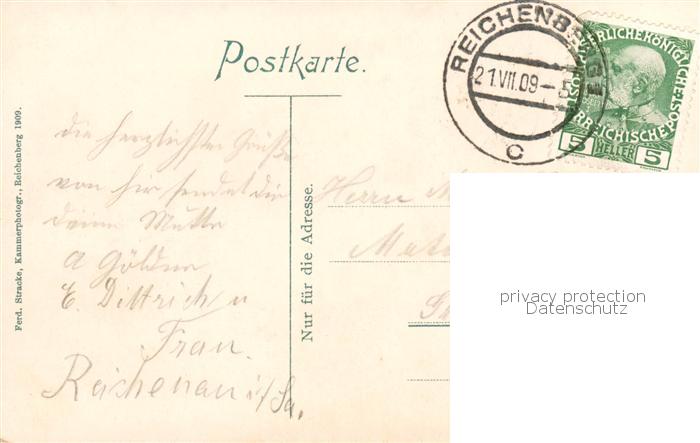 Postkarte.
REICHENBERG 1
21.VII.09-5
C
KAISERLICHE KÖNIGLICHE
ÖSTERREICHISCHE POST
5 HELLER 5
die herzlichsten Grüße
von hir sendet dir
deine Mutter
A Göldner
E. Dittrich u
Frau.
Reichenau i/Sa.
Ferd. Stracke, Kammerphotogr., Reichenberg 1909.
Nur für die Adresse.
Herrn
privacy protection
Datenschutz